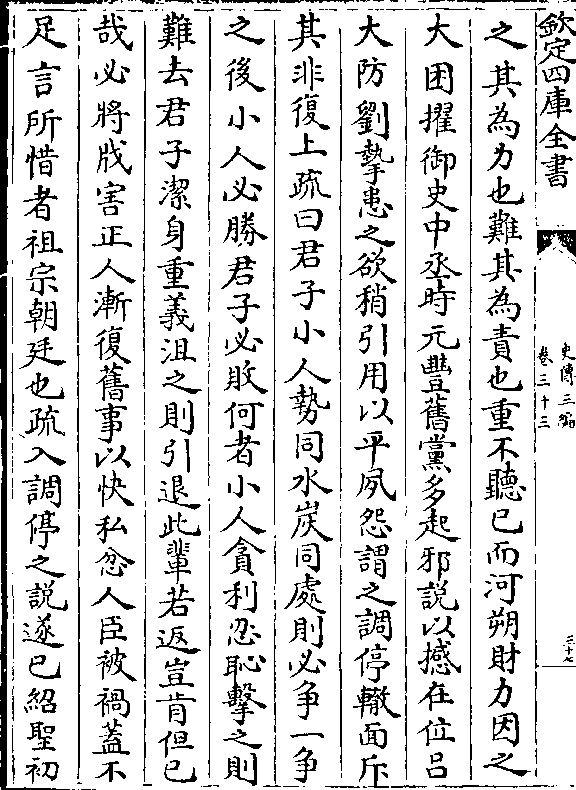 欽定四庫全書
史傳三編
卷三十三
三十七
之其為力也難其為責也重不聽已而河朔財力因之
大困擢御史中丞時元豐舊黨多起邪說以撼在位呂
大防劉摯患之欲稍引用以平夙怨謂之調停轍面斥
其非復上疏曰君子小人勢同水炭同處則必争一争
之後小人必勝君子必敗何者小人貪利忍恥擊之則
難去君子潔身重義沮之則引退此輩若返豈肯但已
哉必將戕害正人漸復舊事以快私忿人臣被禍蓋不
足言所惜者祖宗朝廷也疏入調停之說遂已紹聖初